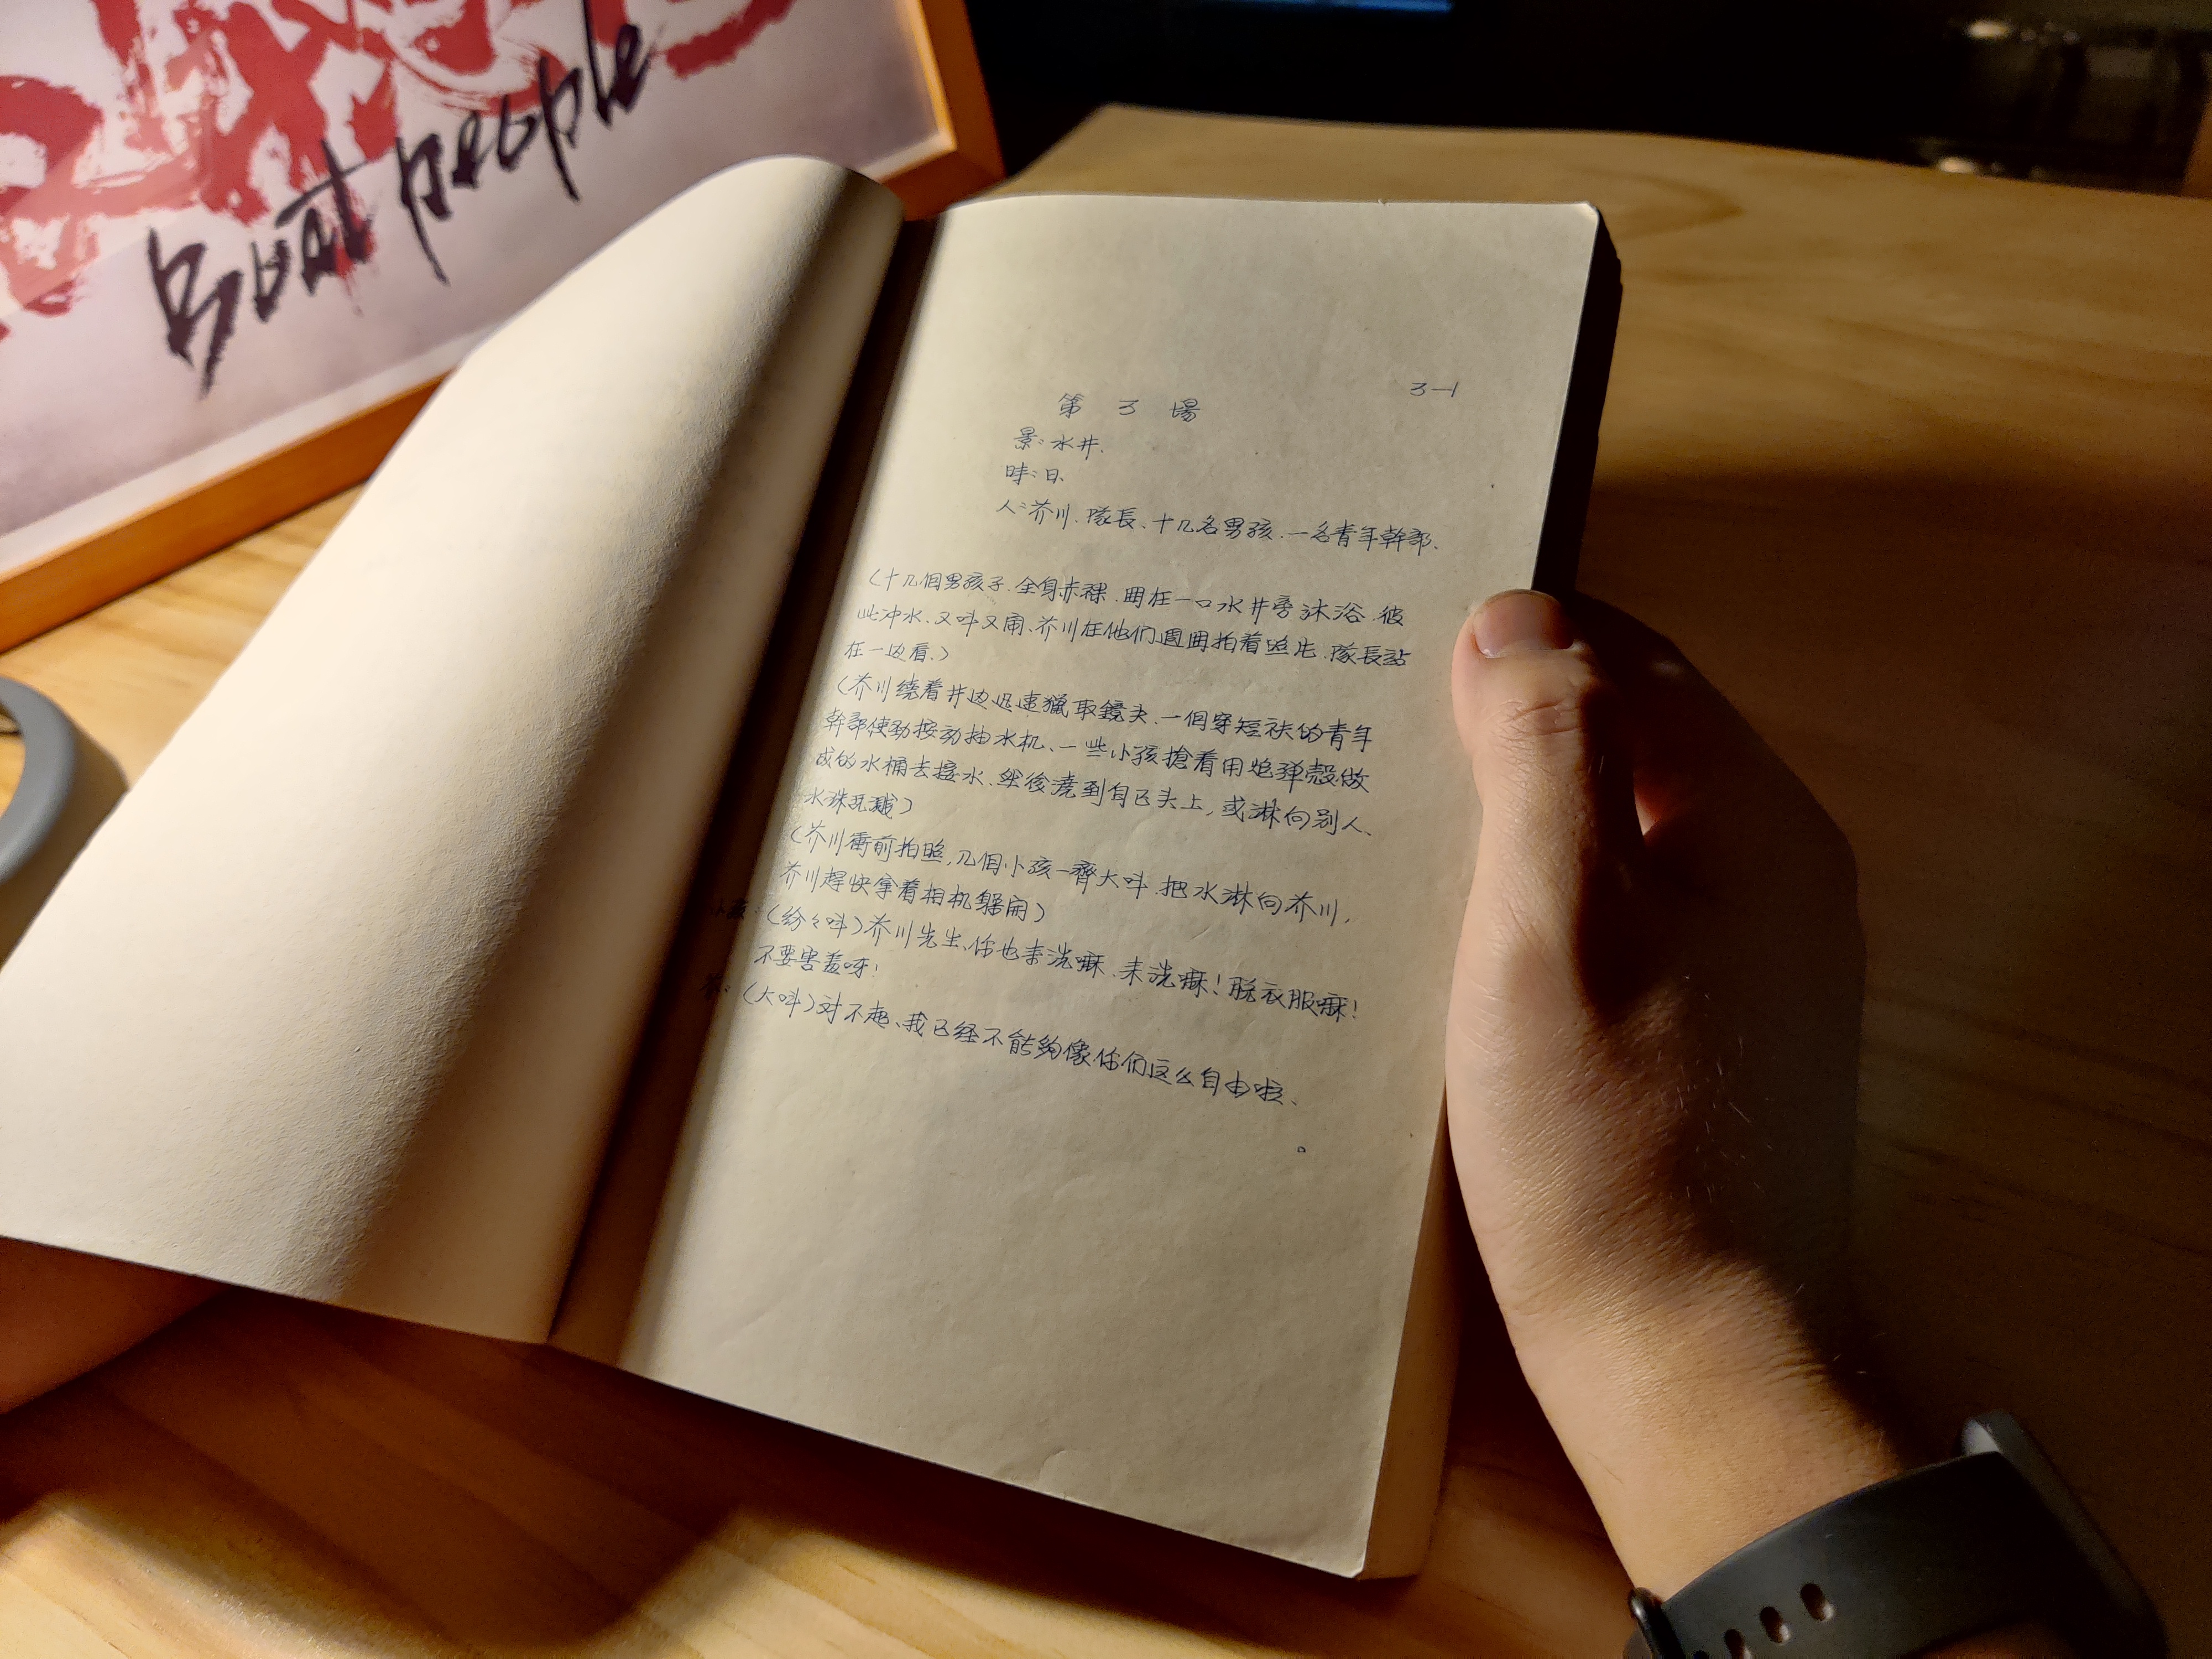 Boat people
3-1
第 3 場
景: 水井.
時: 日.
人: 芥川. 隊長、十几名男孩. 一名青年幹部.
(十几個男孩子. 全身赤裸. 囲在一口水井旁沐浴. 彼
此冲水. 又叫又闹、芥川在他们週囲拍着照片. 隊長站
在一边看.)
(芥川绕着井边迅速獵取鏡头. 一個穿短袄的青年
幹部使劲按动抽水机、一些小孩搶着用炮弹殼做
成的水桶去接水. 然後澆到自己头上, 或淋向别人、
水珠乱溅)
(芥川衝前拍照, 几個小孩一齊大叫. 把水淋向芥川,
芥川趕快拿着相机躲闹)
小孩: (纷々叫) 芥川先生、你也来洗嘛. 来洗嘛! 脱衣服嘛!
不要害羞呀!
芥: (大叫) 对不起、我已经不能夠像你们这么自由啦、
。